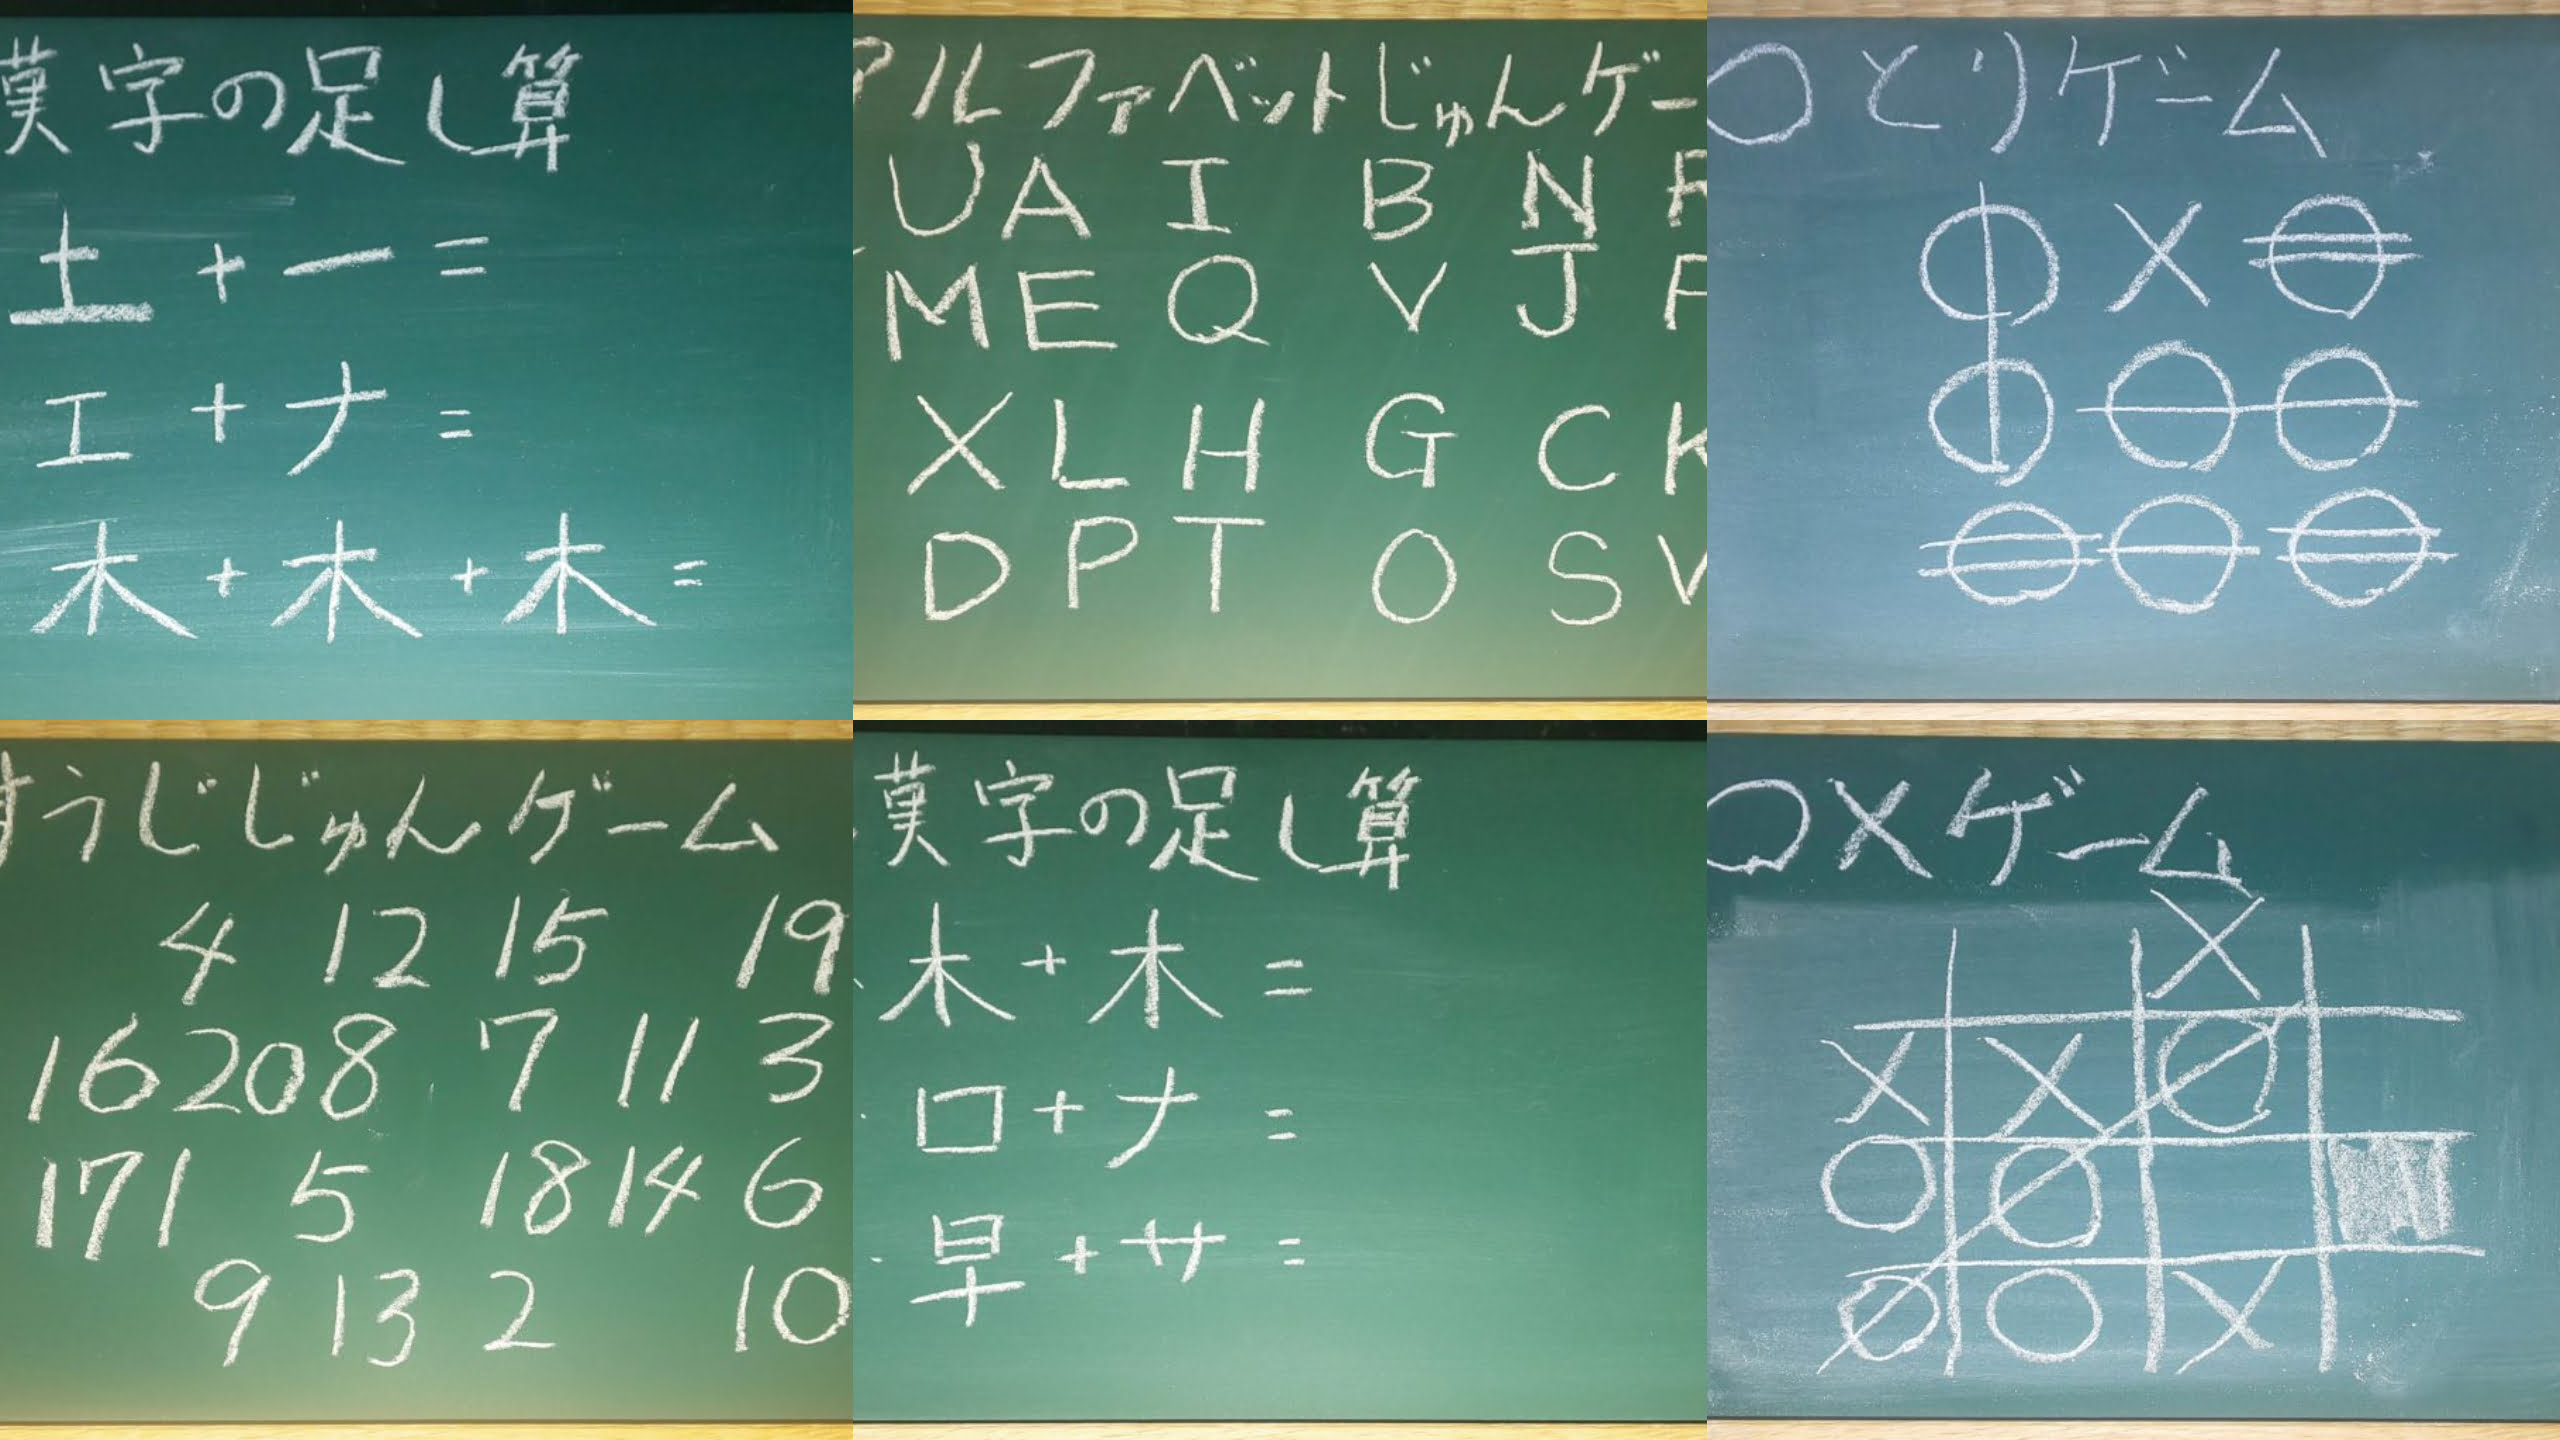 漢字の足し算
土+一=
エ+ナ=
木+木+木=
アルファベットじゅんゲー
U A I B N R
M E Q V J F
X L H G C K
D P T O S
〇とりゲーム
×
すうじじゅんゲーム
4 12 15 19
16 20 8 7 11 3
17 1 5 18 14 6
9 13 2 10
漢字の足し算
木+木=
口+ナ=
早+サ=
〇×ゲーム
×
× × 〇
〇 〇
〇 〇 ×